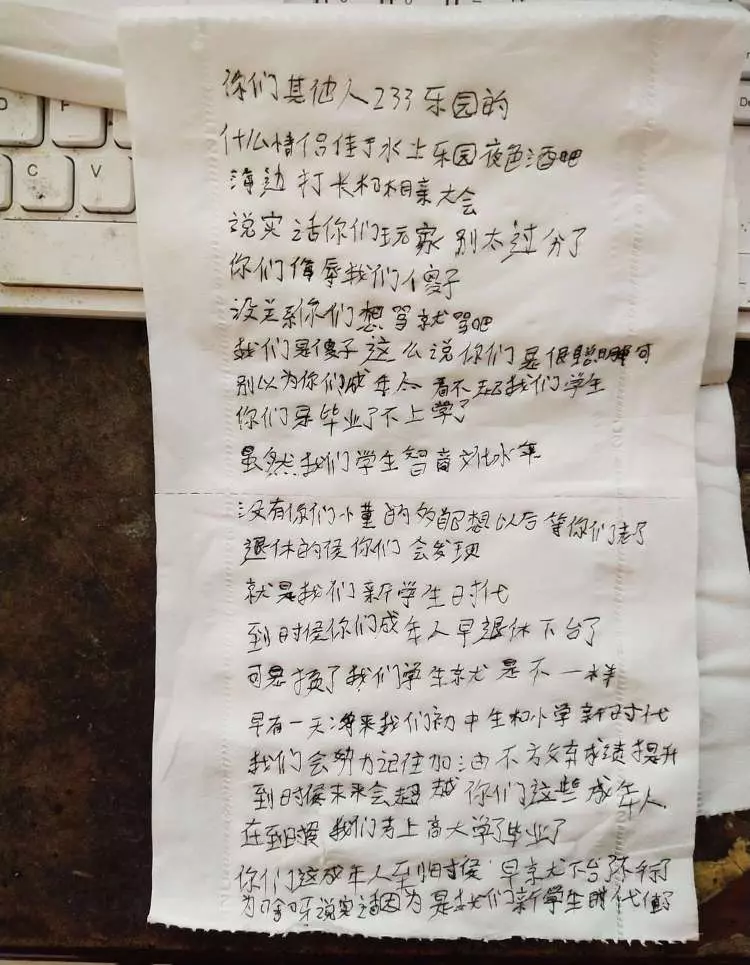 你们其他人233乐园的
什么情侣佳于水上乐园夜色酒吧
海边打长相亲大会
说实话你们玩家别太过分了
你们侮辱我们傻子
没关系你们想骂就骂吧
我们是傻子这么说你们是很聪明
别以为你们成年人看不起我们学生
你们早毕业了不上学了
虽然我们学生智商文化水平
没有你们小董的多自己想以后等你们老了
退休的侯你们会发现
就是我们新学生时代
到时侯你们成年人早退休下台了
可是换了我们学生就是不一样
早有一天将来我们初中生和小学新时代
我们会努力记住加油不放弃成绩提升
到时候未来会超越你们这些成年人
在到时候我们考上高大学了毕业了
你们这成年人到时候早就下台
为啥呀说实话因为是我们新学生时代